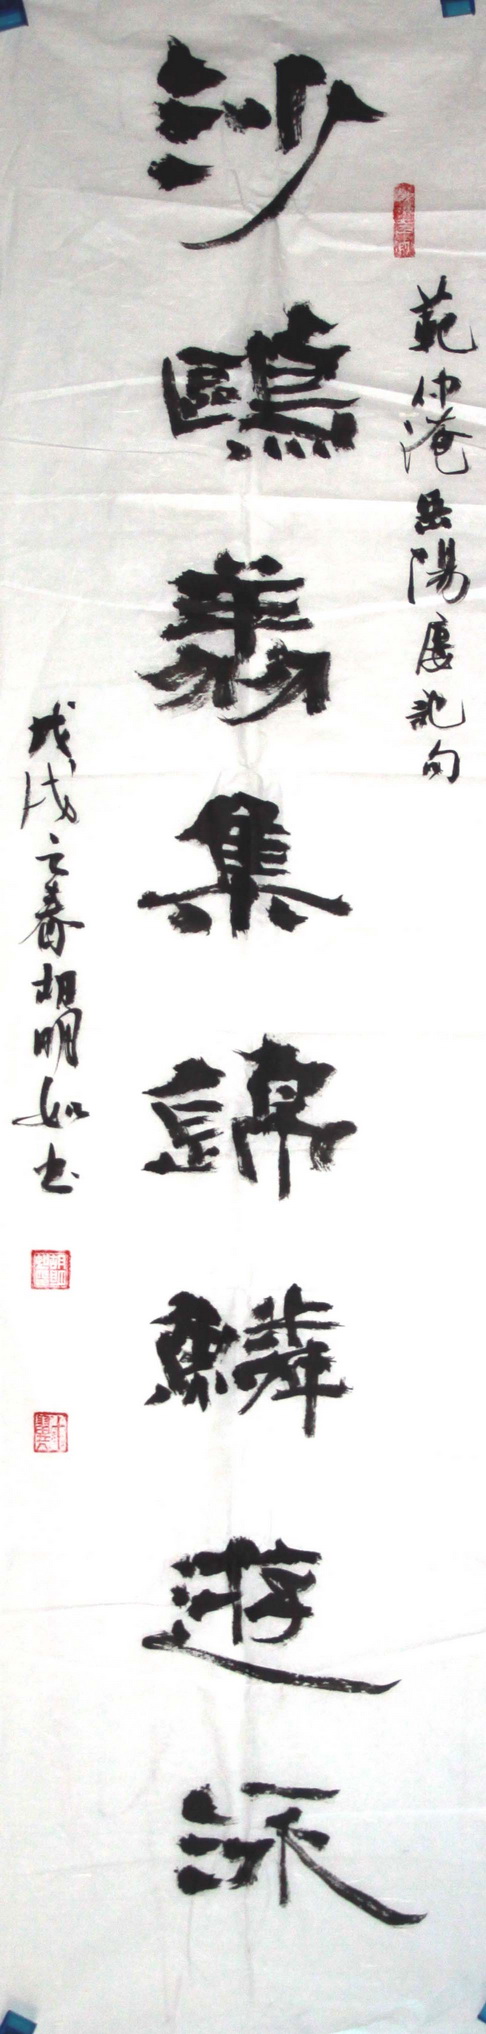 范仲淹岳陽屢記句
沙鷗翔集錦鱗遊泳
戊戌之春胡明如书